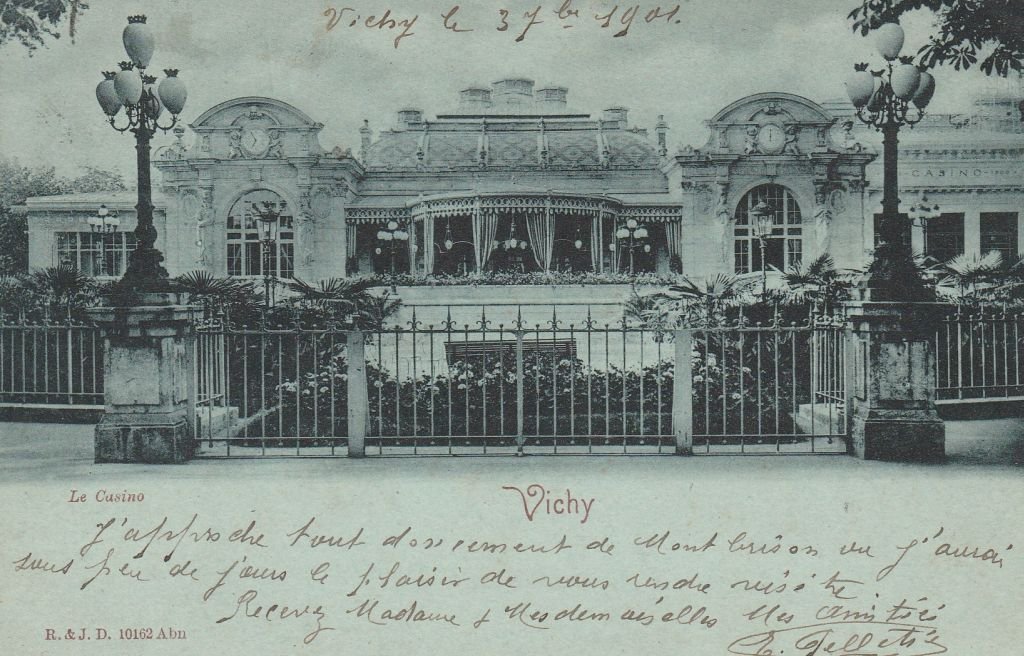 Vichy le 3 7bre 1901.
CASINO
Le Casino
Vichy
J'approche tout doucement de Montbrison ou j'aurai
sous peu de jours le plaisir de vous rendre visite
Recevez Madame & Mesdemoiselles Mes amitiés
E. Pelletier
R. & J. D. 10162 Abn